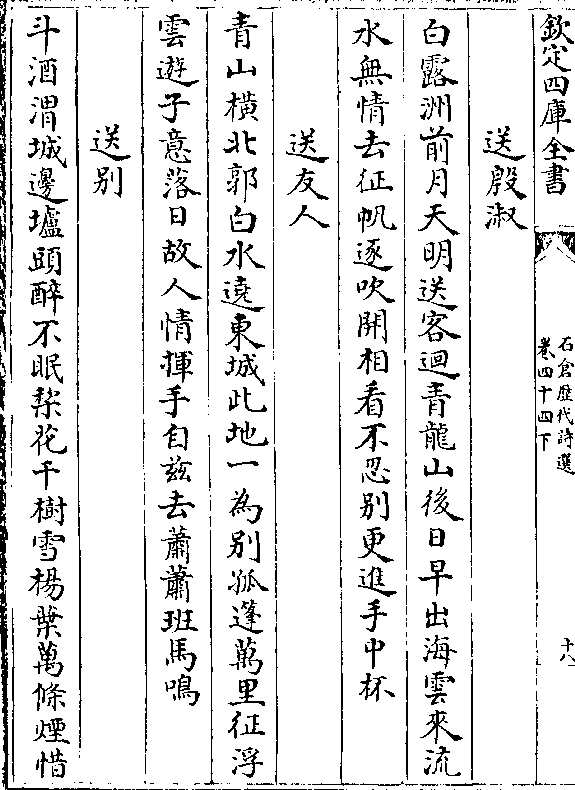 欽定四庫全書
石倉歴代詩選
卷四十四下
十八
送殷淑
白露洲前月天明送客迴青龍山後日早出海雲來流
水無情去征帆逐吹開相看不忍別更進手中杯
送友人
青山橫北郭白水遶東城此地一為別孤蓬萬里征浮
雲遊子意落日故人情揮手自兹去蕭蕭班馬鳴
送別
斗酒渭城邊壚頭醉不眠棃花千樹雪楊葉萬條煙惜